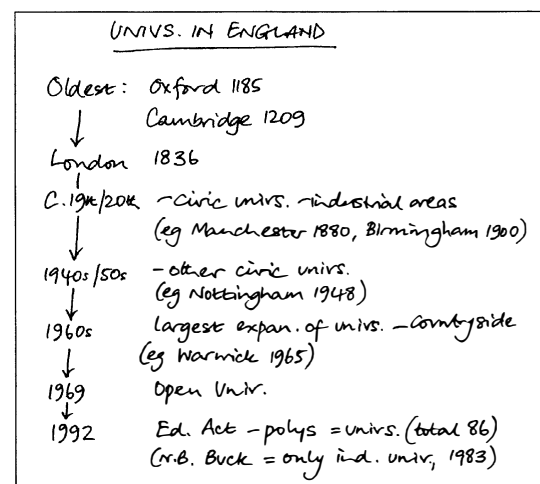 UNIVS. IN ENGLAND
Oldest: Oxford 1185
Cambridge 1209
London 1836
C.19th/20th -civic univs. -industrial areas
(eg Manchester 1880, Birmingham 1900)
1940s/50s -other civic univs.
(eg Nottingham 1948)
1960s largest expan. of univs. -Countryside
(eg Warwick 1965)
1969 Open Univ.
1992 Ed. Act - polys = univs. (total 86)
(N.B. Buck = only ind. univ., 1983)